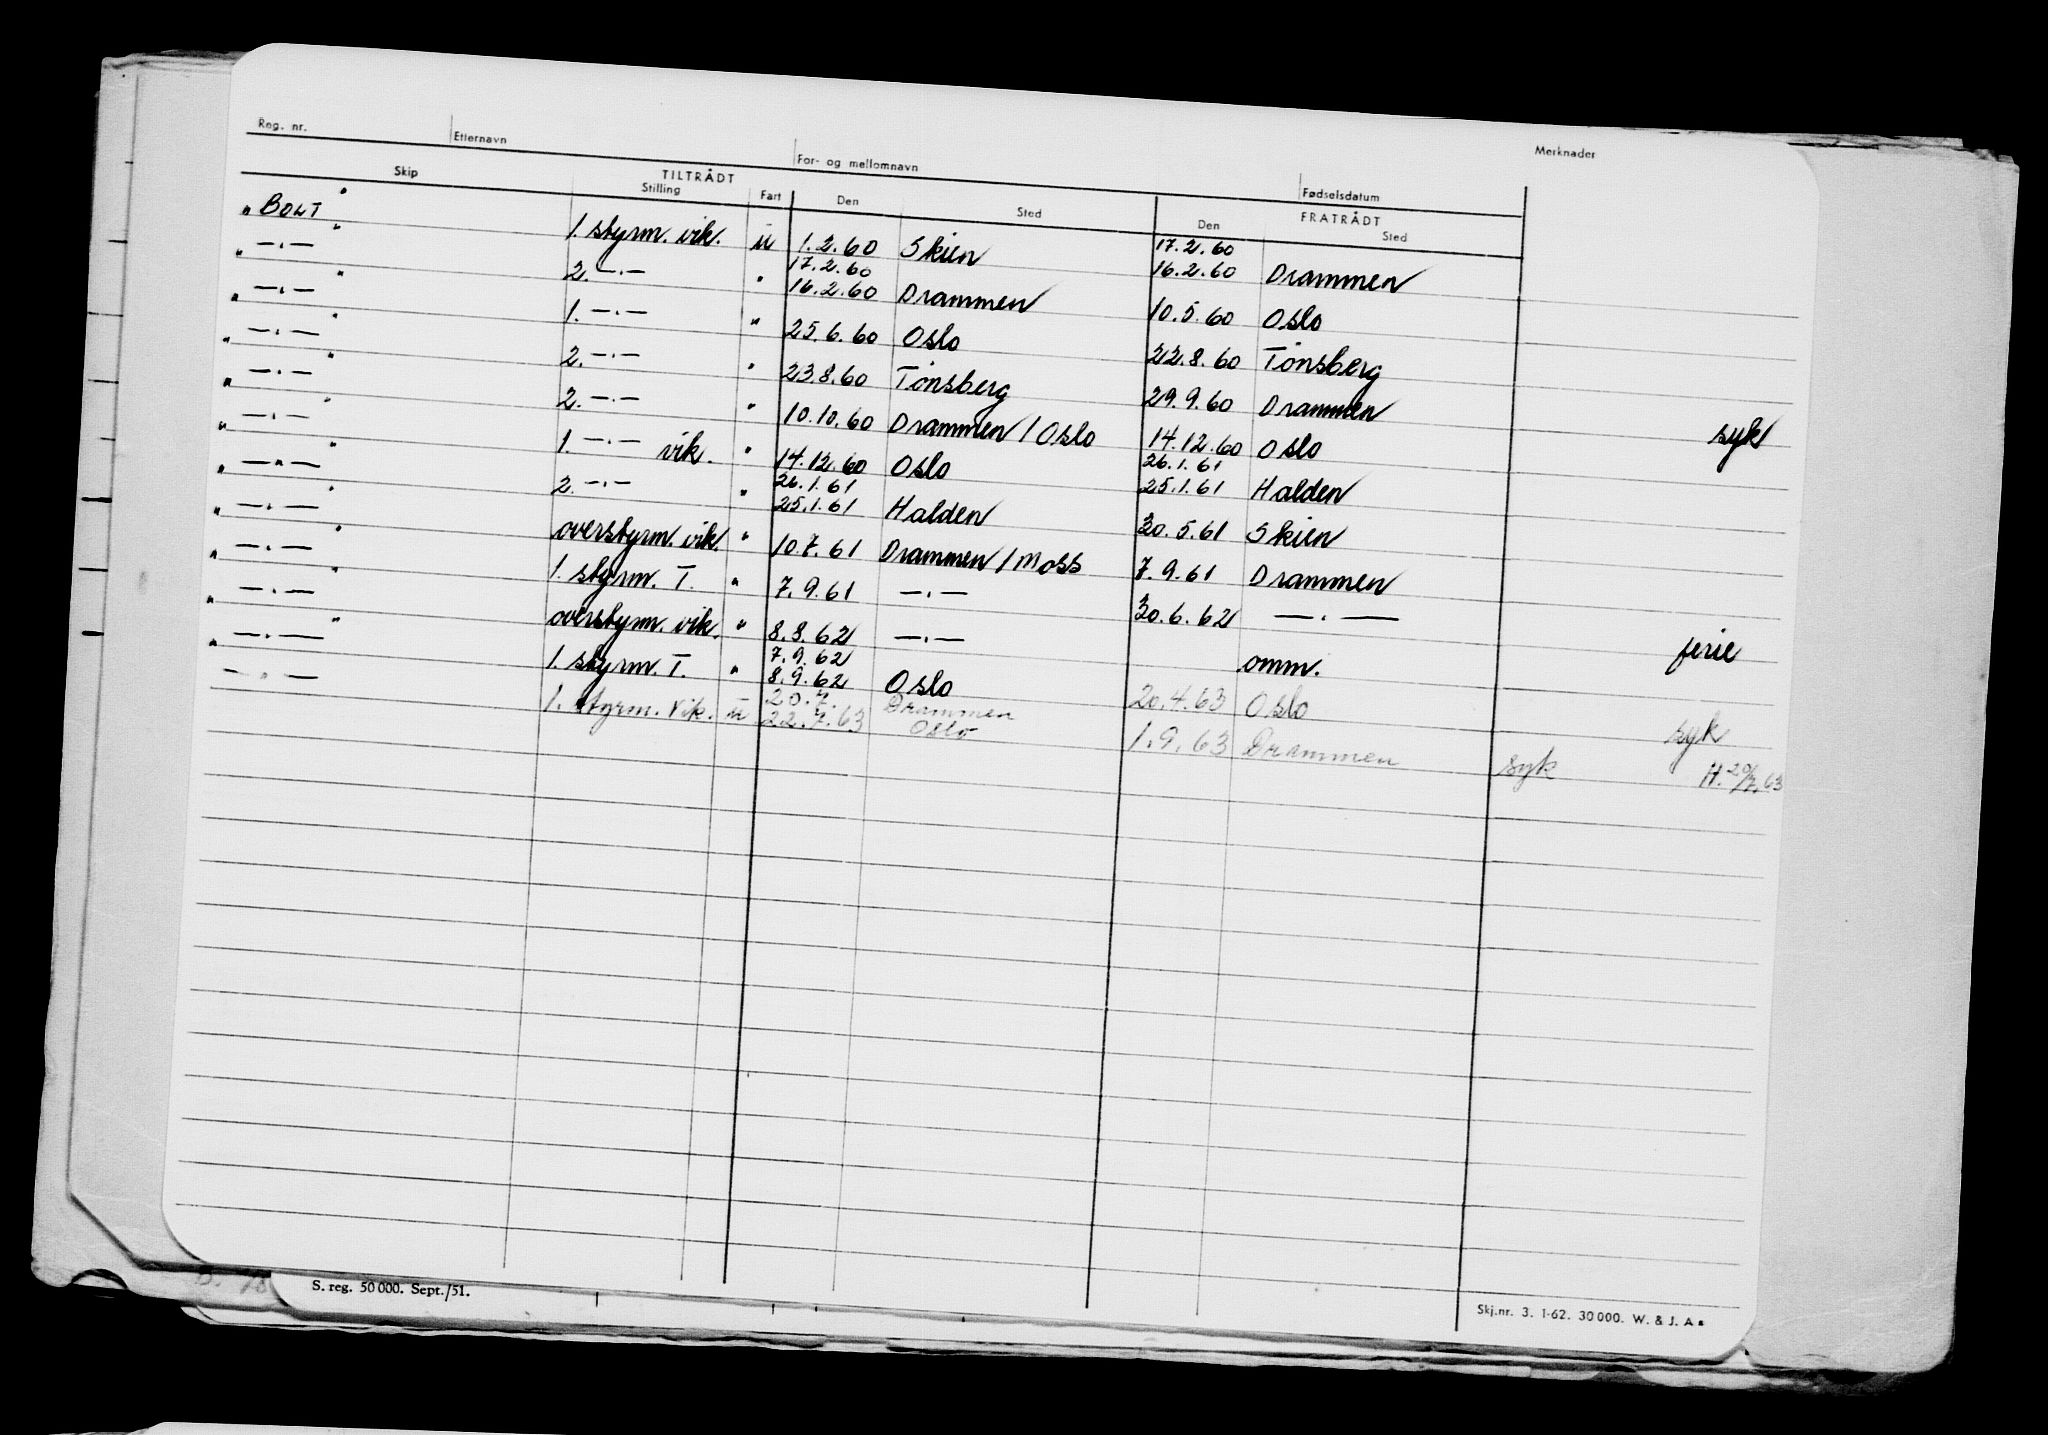 Reg. nr. Etternavn For- og mellomnavn Fødselsdatum Merknader
Skip TILTRÅDT FRATRÅDT
Stilling Fart Den Sted Den Sted
"BOLT" 1. styrm. vik. u 1.2.60 Skien 17.2.60
16.2.60 Drammen
" —.— " 2. —.— " 17.2.60
16.2.60 Drammen 10.5.60 Oslo
" —.— " 1. —.— " 25.6.60 Oslo 22.8.60 Tönsberg
" —.— " 2. —.— " 23.8.60 Tönsberg 29.9.60 Drammen syk
" —.— " 2. —.— " 10.10.60 Drammen / Oslo 14.12.60 Oslo
" —.— " 1. —.— vik. " 14.12.60 Oslo 26.1.61
25.1.61 Halden
" —.— " 2. —.— " 26.1.61
25.1.61 Halden 30.5.61 Skien
" —.— " overstyrm. vik. " 10.7.61 Drammen / Moss 7.9.61 Drammen
" —.— " 1. styrm. T. " 7.9.61 —.— 30.6.62 —.— ferie
" —.— " overstyrm. vik. " 8.8.62 —.— omm.
" —.— " 1. styrm. T. " 7.9.62
8.9.62 Oslo 20.4.63 Oslo syk
—.— 1. styrm. vik. u 20.7. Drammen
22.7.63 Oslo 1.9.63 Drammen syk H. 20/7.63
S. reg. 50 000. Sept./51.
Skj.nr. 3. 1-62. 30 000. W. & J. A s